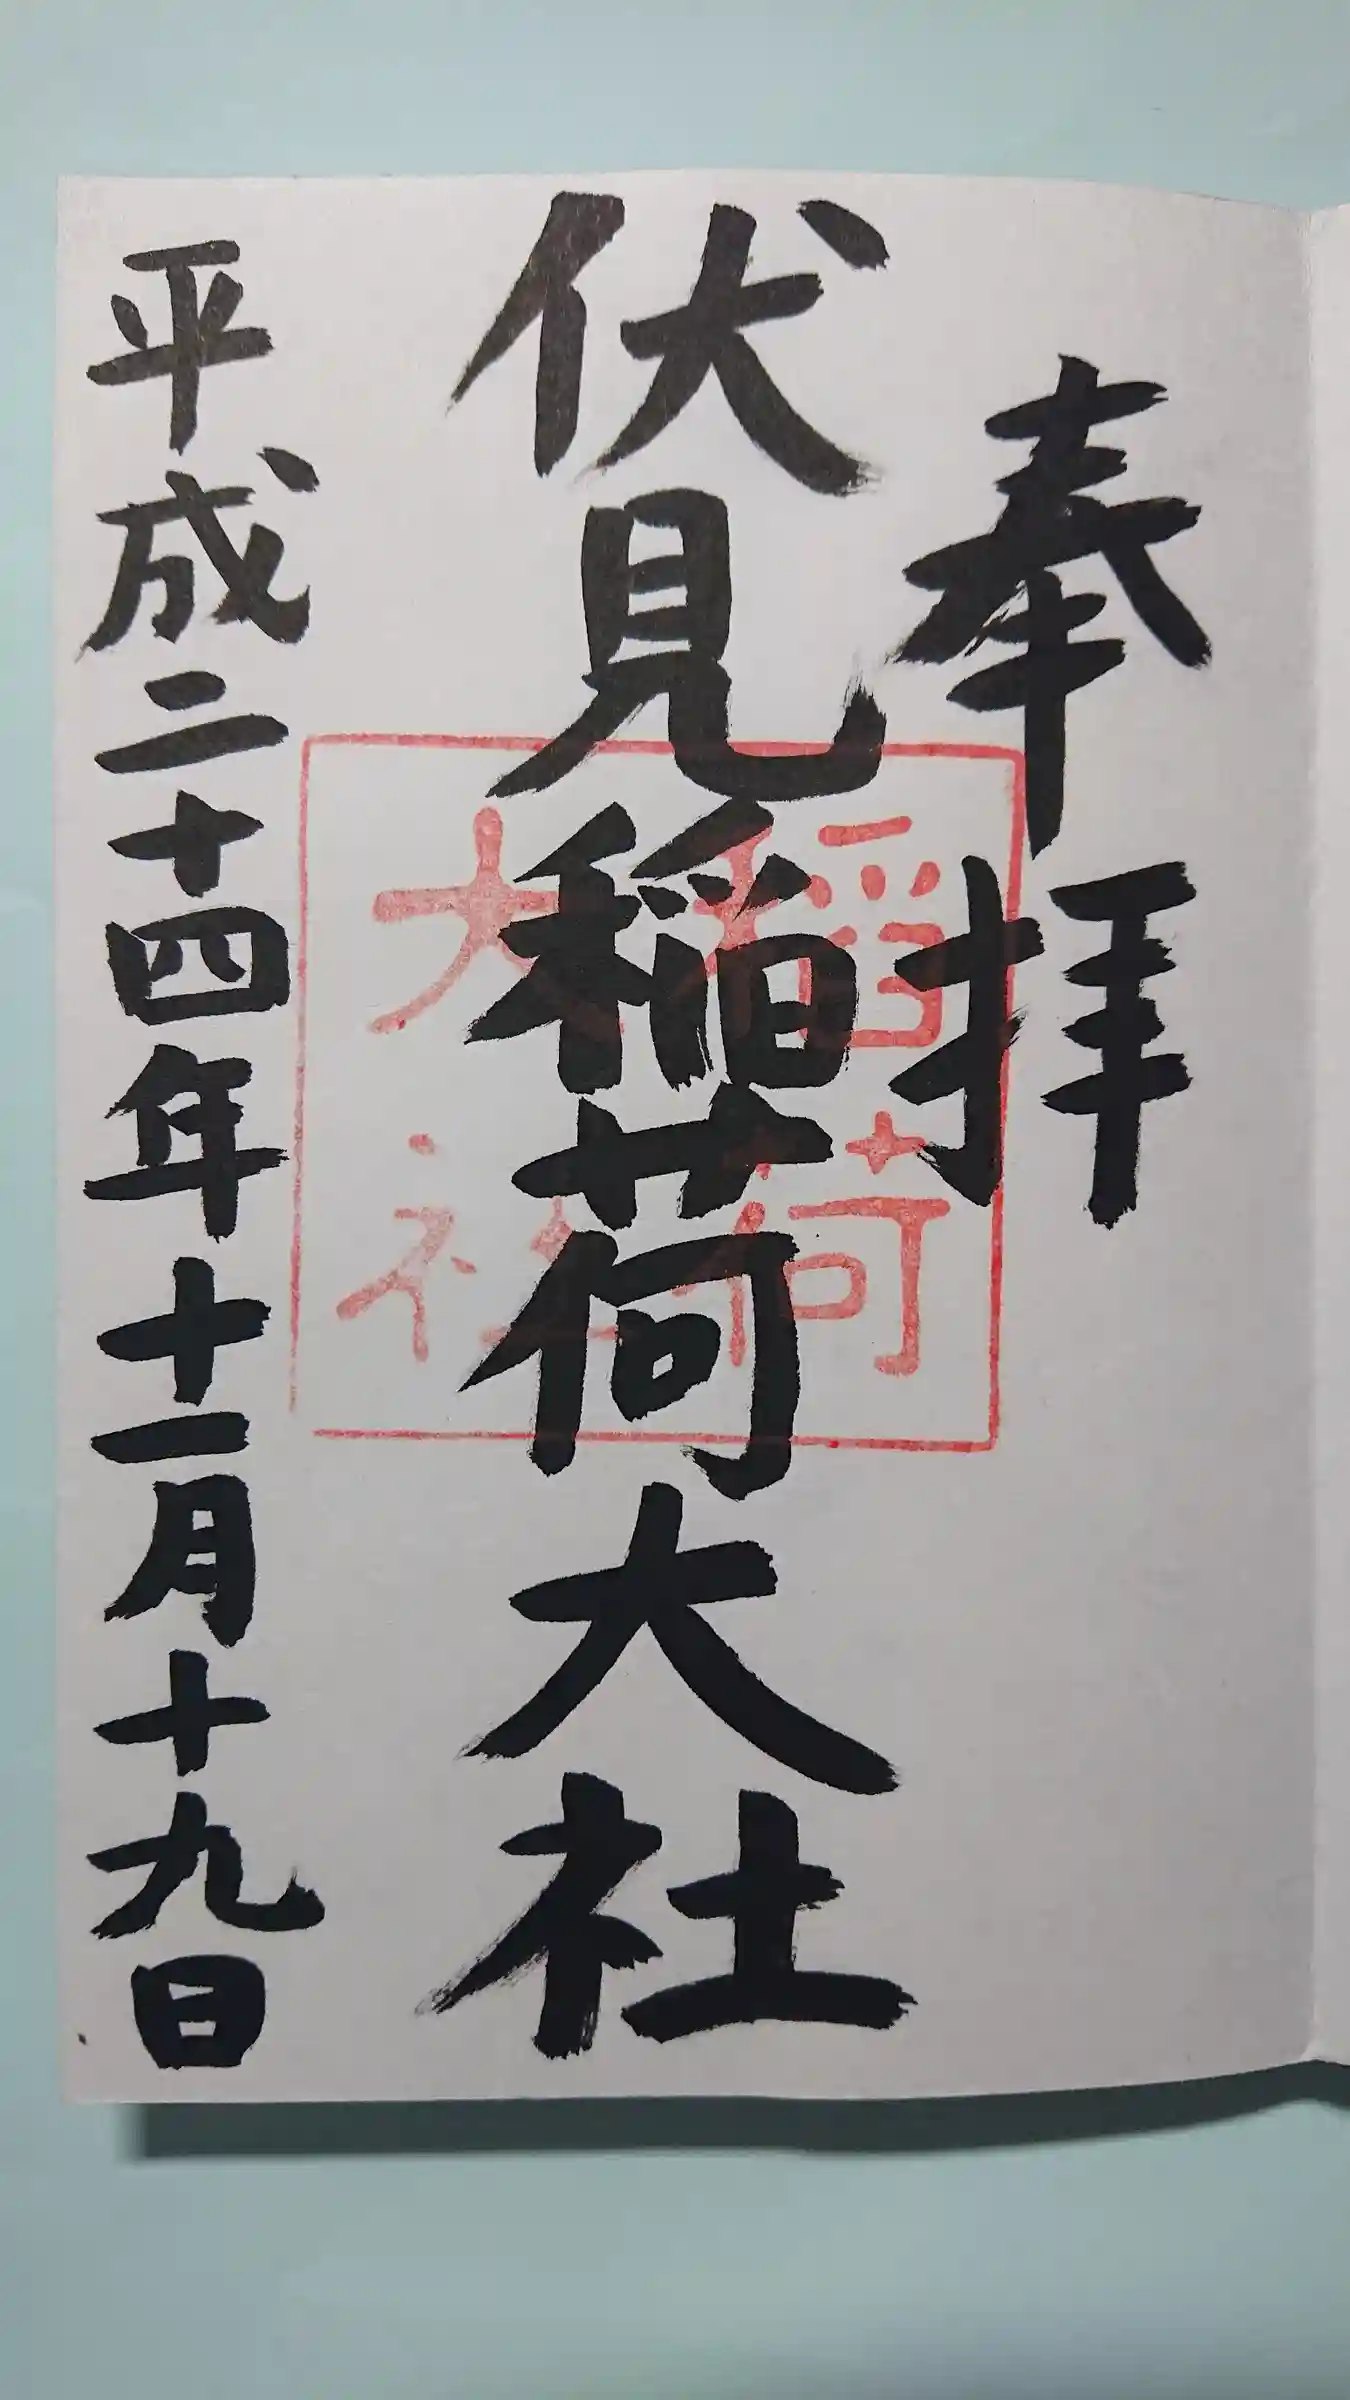 奉拝
伏見稲荷大社
稲荷
大社
平成二十四年十一月十九日